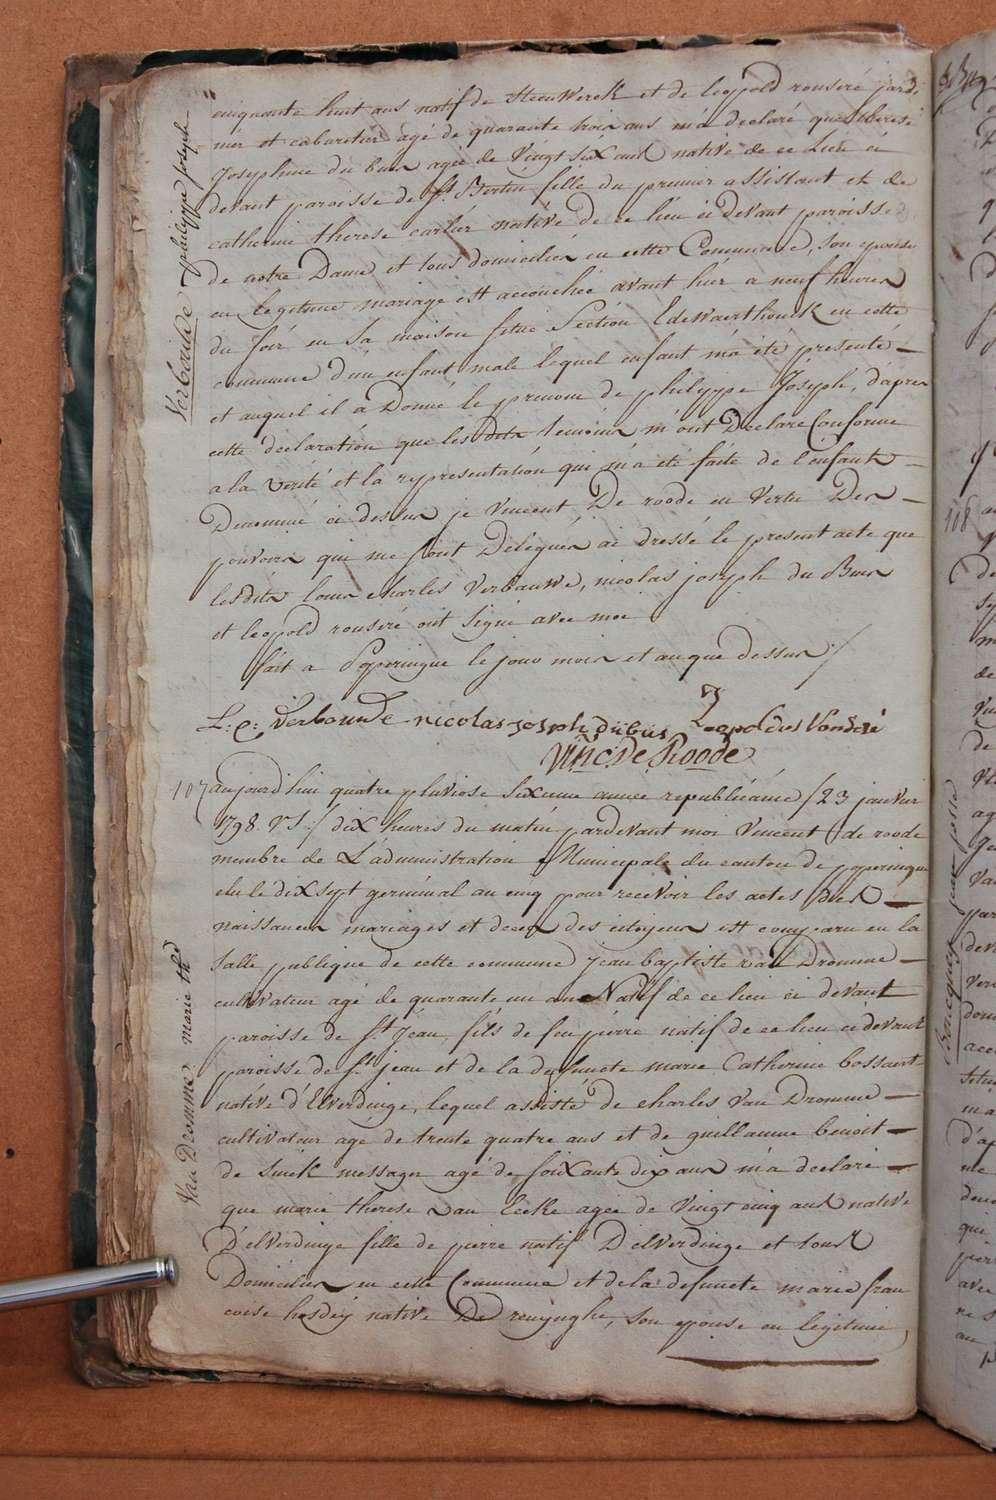 Verbounde philippe joseph
cinquante huit ans natif de Steenwerck et de leopold rouseré jardi
nier et cabaretier agé de quarante trois ans m'a declaré que therese
Josephine du bus agée de Vingt six ans native de ce Lieu ci
devant paroisse de St. Bertin fille du premier assistant et de
catherine therese carlier native de ce lieu ci devant paroisse
de notre Dame et tous domiciliés en cette Commune, son epouse
en legitime mariage est accouchée avant hier a neuf heures
du soir en sa maison situé Section Edewaerthouck en cette
commune d'un enfant male lequel enfant m'a été presenté —
et auquel il a Donné le prenom de philippe Joseph, d'apres
cette declaration que les dits temoins m'ont Declaré Conforme
a la verité et la representation qui m'a été faite de l'enfant —
Denommé ci dessus je Vincent De roode en Vertu Des —
pouvoirs qui me sont Delegués ai dressé le present acte que
lesdits Louis charles Verbauwe, nicolas joseph du Bus
et leopold rouseré ont signé avec moi
fait a Poperingue le jour mois et an que dessus /
L: C: Verbounde nicolas joseph dubus Leopoldus
Vinc. De Roode
107 aujourd'hui quatre pluviose sixieme année republicaine / 23 janvier
1798. V S / dix heures du matin pardevant moi Vincent de roode
membre de L'administration Municipale du canton de poperingue
elu le dix sept germinal an cinq pour recevoir les actes des —
naissances mariages et deces des citoyens est comparu en la
Salle publique de cette commune jean baptiste van Dromme —
cultivateur agé de quarante un ans Natif de ce lieu ci devant
paroisse de St. Jean, fils de feu pierre natif de ce lieu ci devant
paroisse de St jean et de la defuncte marie Catherine bossaert
native d'Elverdinge, lequel assisté de charles Van Dromme —
cultivateur agé de trente quatre ans et de guillaume benoit —
de Smik messager agé de soixante dix ans m'a declaré —
que marie therese van Eecke agée de Vingt cinq ans native
D'elverdinge fille de pierre natif D'elverdinge et tous
Domiciliés en cette Commune et de la defuncte marie fran
coise hosdey native De reninghe, son epouse en legitime
Van Dromme marie thé